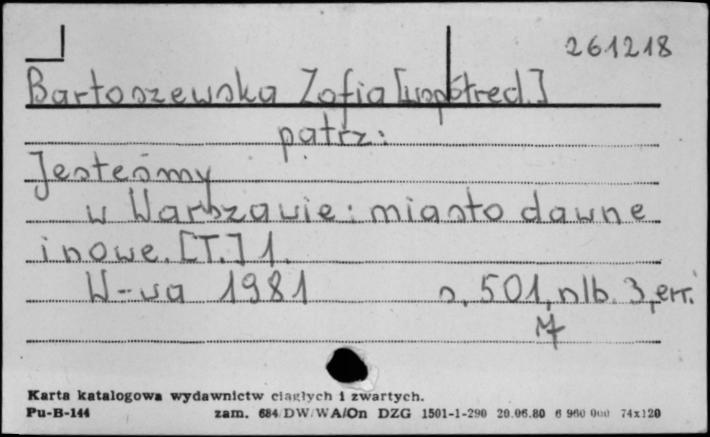 261218
Bartoszewska Zofia [współred.]
patrz:
Jesteśmy
w Warszawie: miasto dawne
i nowe. [T.] 1.
W-wa 1981 s. 501, nlb. 3, err.
Karta katalogowa wydawnictw ciągłych i zwartych.
Pu-B-144 zam. 684/DW/WA/On DZG 1501-1-290 20.06.80 6 960 000 74x120